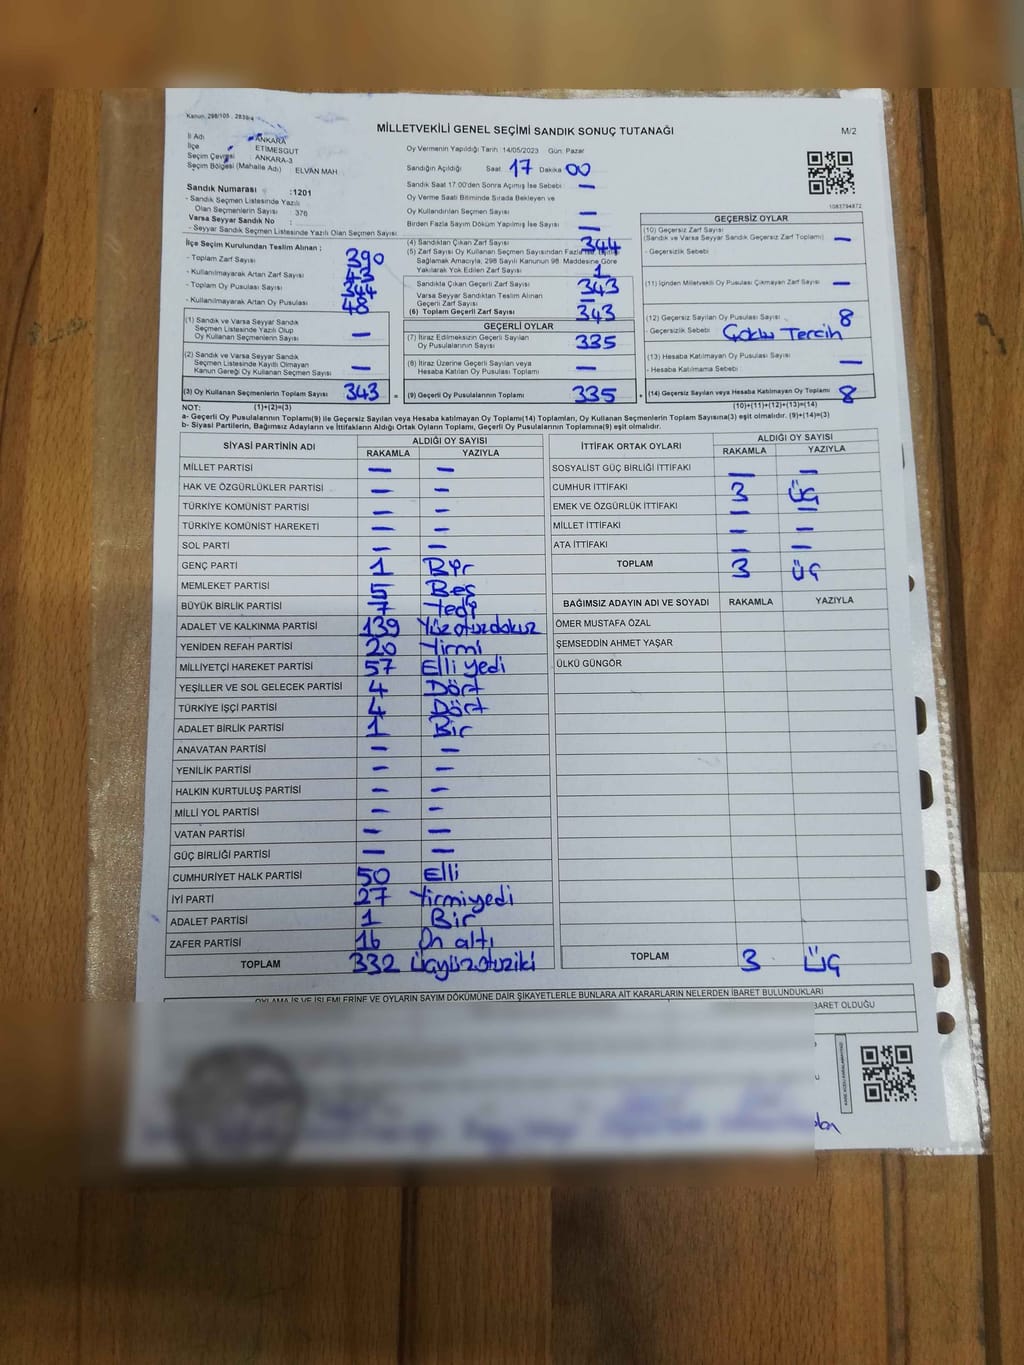 Kanun: 298/105 , 2839/4
MİLLETVEKİLİ GENEL SEÇİMİ SANDIK SONUÇ TUTANAĞI
M/2
İl Adı ANKARA
İlçe ETİMESGUT
Seçim Çevresi ANKARA-3
Seçim Bölgesi (Mahalle Adı) ELVAN MAH
Sandık Numarası :1201
- Sandık Seçmen Listesinde Yazılı
Olan Seçmenlerin Sayısı 376
Varsa Seyyar Sandık No :
- Seyyar Sandık Seçmen Listesinde Yazılı Olan Seçmen Sayısı
Oy Vermenin Yapıldığı Tarih :14/05/2023 Gün: Pazar
Sandığın Açıldığı Saat 17 Dakika 00
Sandık Saat 17:00'den Sonra Açımış İse Sebebi —
Oy Verme Saati Bitiminde Sırada Bekleyen ve
Oy Kullandırılan Seçmen Sayısı —
Birden Fazla Sayım Döküm Yapılmış İse Sayısı —
1083794872
İlçe Seçim Kurulundan Teslim Alınan :
- Toplam Zarf Sayısı 390
- Kullanılmayarak Artan Zarf Sayısı 43
- Toplam Oy Pusulası Sayısı 344
- Kullanılmayarak Artan Oy Pusulası 48
(1) Sandık ve Varsa Seyyar Sandık
Seçmen Listesinde Yazılı Olup
Oy Kullanan Seçmenlerin Sayısı —
(2) Sandık ve Varsa Seyyar Sandık
Seçmen Listesinde Kayıtlı Olmayan
Kanun Gereği Oy Kullanan Seçmen Sayısı —
(3) Oy Kullanan Seçmenlerin Toplam Sayısı 343
(4) Sandıktan Çıkan Zarf Sayısı 344
(5) Zarf Sayısı Oy Kullanan Seçmen Sayısından Fazla
Sağlamak Amacıyla; 298 Sayılı Kanunun 98. Maddesine Göre
Yakılarak Yok Edilen Zarf Sayısı 1
Sandıkta Çıkan Geçerli Zarf Sayısı 343
Varsa Seyyar Sandıktan Teslim Alınan
Geçerli Zarf Sayısı —
(6) Toplam Geçerli Zarf Sayısı 343
GEÇERLİ OYLAR
(7) İtiraz Edilmeksizin Geçerli Sayılan
Oy Pusulalarının Sayısı 335
(8) İtiraz Üzerine Geçerli Sayılan veya
Hesaba Katılan Oy Pusulası Toplamı —
= (9) Geçerli Oy Pusulalarının Toplamı 335
GEÇERSİZ OYLAR
(10) Geçersiz Zarf Sayısı
(Sandık ve Varsa Seyyar Sandık Geçersiz Zarf Toplamı) —
- Geçersizlik Sebebi
(11) İçinden Milletvekili Oy Pusulası Çıkmayan Zarf Sayısı —
(12) Geçersiz Sayılan Oy Pusulası Sayısı 8
- Geçersizlik Sebebi Çoklu Tercih
(13) Hesaba Katılmayan Oy Pusulası Sayısı —
- Hesaba Katılmama Sebebi
+ (14) Geçersiz Sayılan veya Hesaba Katılmayan Oy Toplamı 8
NOT: (1)+(2)=(3) (10)+(11)+(12)+(13)=(14)
a- Geçerli Oy Pusulalarının Toplamı(9) ile Geçersiz Sayılan veya Hesaba katılmayan Oy Toplamı(14) Toplamları, Oy Kullanan Seçmenlerin Toplam Sayısına(3) eşit olmalıdır. (9)+(14)=(3)
b- Siyasi Partilerin, Bağımsız Adayların ve İttifakların Aldığı Ortak Oyların Toplamı, Geçerli Oy Pusulalarının Toplamına(9) eşit olmalıdır.
SİYASİ PARTİNİN ADI ALDIĞI OY SAYISI
RAKAMLA YAZIYLA
MİLLET PARTİSİ — —
HAK VE ÖZGÜRLÜKLER PARTİSİ — —
TÜRKİYE KOMÜNİST PARTİSİ — —
TÜRKİYE KOMÜNİST HAREKETİ — —
SOL PARTİ — —
GENÇ PARTİ 1 Bir
MEMLEKET PARTİSİ 5 Beş
BÜYÜK BİRLİK PARTİSİ 7 Yedi
ADALET VE KALKINMA PARTİSİ 139 Yüzotuzdokuz
YENİDEN REFAH PARTİSİ 20 Yirmi
MİLLİYETÇİ HAREKET PARTİSİ 57 Elli yedi
YEŞİLLER VE SOL GELECEK PARTİSİ 4 Dört
TÜRKİYE İŞÇİ PARTİSİ 4 Dört
ADALET BİRLİK PARTİSİ 1 Bir
ANAVATAN PARTİSİ — —
YENİLİK PARTİSİ — —
HALKIN KURTULUŞ PARTİSİ — —
MİLLİ YOL PARTİSİ — —
VATAN PARTİSİ — —
GÜÇ BİRLİĞİ PARTİSİ — —
CUMHURİYET HALK PARTİSİ 50 Elli
İYİ PARTİ 27 Yirmiyedi
ADALET PARTİSİ 1 Bir
ZAFER PARTİSİ 16 On altı
TOPLAM 332 Üçyüzotuziki
İTTİFAK ORTAK OYLARI ALDIĞI OY SAYISI
RAKAMLA YAZIYLA
SOSYALİST GÜÇ BİRLİĞİ İTTİFAKI — —
CUMHUR İTTİFAKI 3 Üç
EMEK VE ÖZGÜRLÜK İTTİFAKI — —
MİLLET İTTİFAKI — —
ATA İTTİFAKI — —
TOPLAM 3 üç
BAĞIMSIZ ADAYIN ADI VE SOYADI RAKAMLA YAZIYLA
ÖMER MUSTAFA ÖZAL
ŞEMSEDDİN AHMET YAŞAR
ÜLKÜ GÜNGÖR
TOPLAM 3 Üç
OYLAMA İŞ VE İŞLEMLERİNE VE OYLARIN SAYIM DÖKÜMÜNE DAİR ŞİKAYETLERLE BUNLARA AİT KARARLARIN NELERDEN İBARET BULUNDUKLARI
BARET OLDUĞU